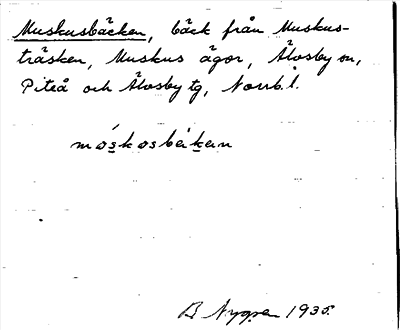 Muskusbäcken, bäck från Muskus-
träsken, Muskus ägor, Älvsby sn,
Piteå och Älvsby tg, Norrb. l.
móskosbäkan
B Nygren 1935.